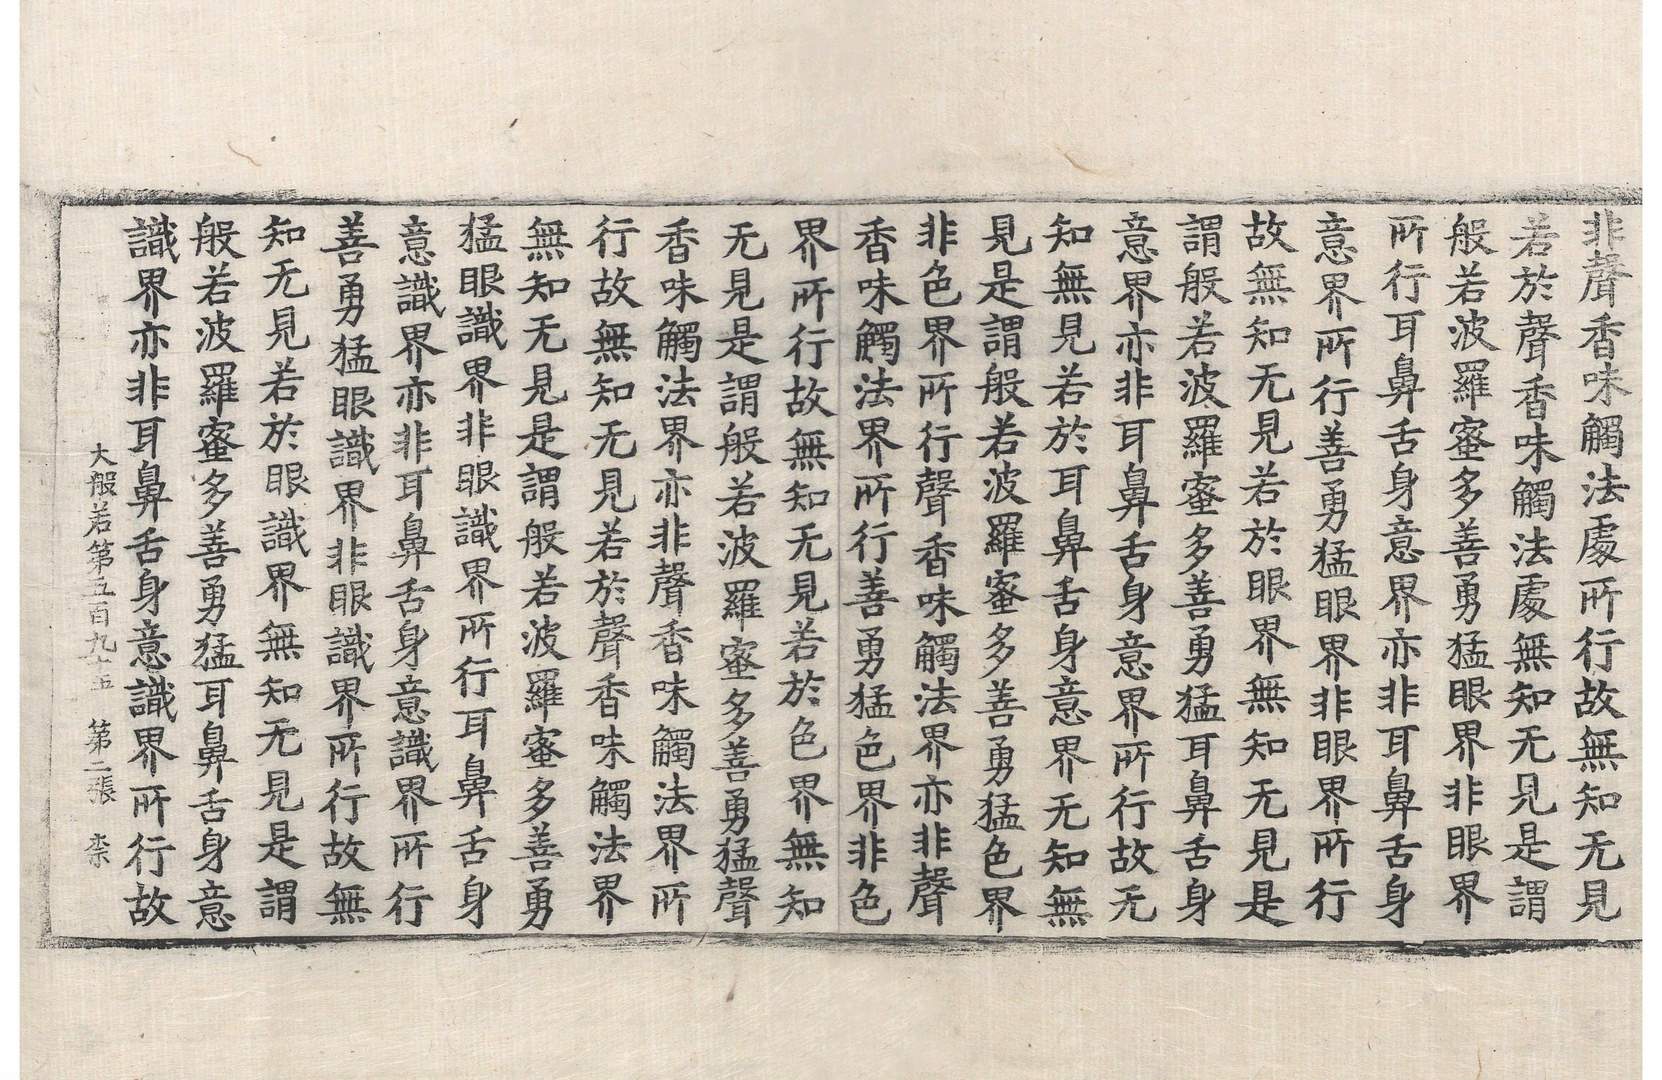 非聲香味觸法處所行故無知无見
若於聲香味觸法處無知无見是謂
般若波羅蜜多善勇猛眼界非眼界
所行耳鼻舌身意界亦非耳鼻舌身
意界所行善勇猛眼界非眼界所行
故無知无見若於眼界無知无見是
謂般若波羅蜜多善勇猛耳鼻舌身
意界亦非耳鼻舌身意界所行故无
知無見若於耳鼻舌身意界无知無
見是謂般若波羅蜜多善勇猛色界
非色界所行聲香味觸法界亦非聲
香味觸法界所行善勇猛色界非色
界所行故無知无見若於色界無知
无見是謂般若波羅蜜多善勇猛聲
香味觸法界亦非聲香味觸法界所
行故無知无見若於聲香味觸法界
無知无見是謂般若波羅蜜多善勇
猛眼識界非眼識界所行耳鼻舌身
意識界亦非耳鼻舌身意識界所行
善勇猛眼識界非眼識界所行故無
知无見若於眼識界無知无見是謂
般若波羅蜜多善勇猛耳鼻舌身意
識界亦非耳鼻舌身意識界所行故
大般若第五百九十五 第二張 柰